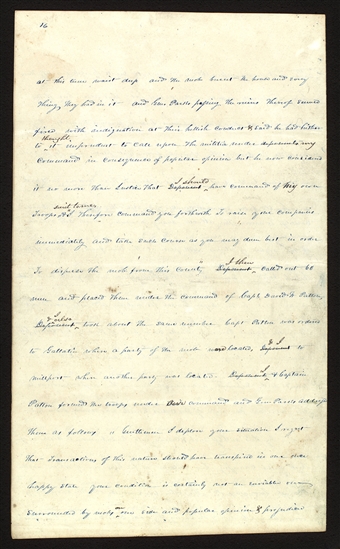 16
at this time waist deep and the mob burnt the house and every
thing they had in it and Gen Parks passing the ruins thereof seemed
fired with indignation at their hellish conduct & said he had hither
thought
to it imprudent to call upon the militia under my
command in consequence of popular opinion but he now considered
I should
it no more than Justice that Deponent have command of his own
Troops & I therefore command you forthwith to raise your companies
immediately and take such course as you may deem best in order
I then
to disperse the mob from this County Deponent called out 60
men and placed them under the command of Capt David W Patten
& I also
Deponent took about the same number Capt Patten was ordered
& I
to Gallatin where a party of the mob was located, & Deponent to
Millport where another party was located Deponent & Captain
I
Patten formed the troops under command and Gen Parks addressed
them as follows Gentlemen I deplore your situation I regret
that transactions of this nature should have transpired in our once
happy State your condition is certainly not an enviable one
surrounded by mobs on one side and popular opinion & prejudice